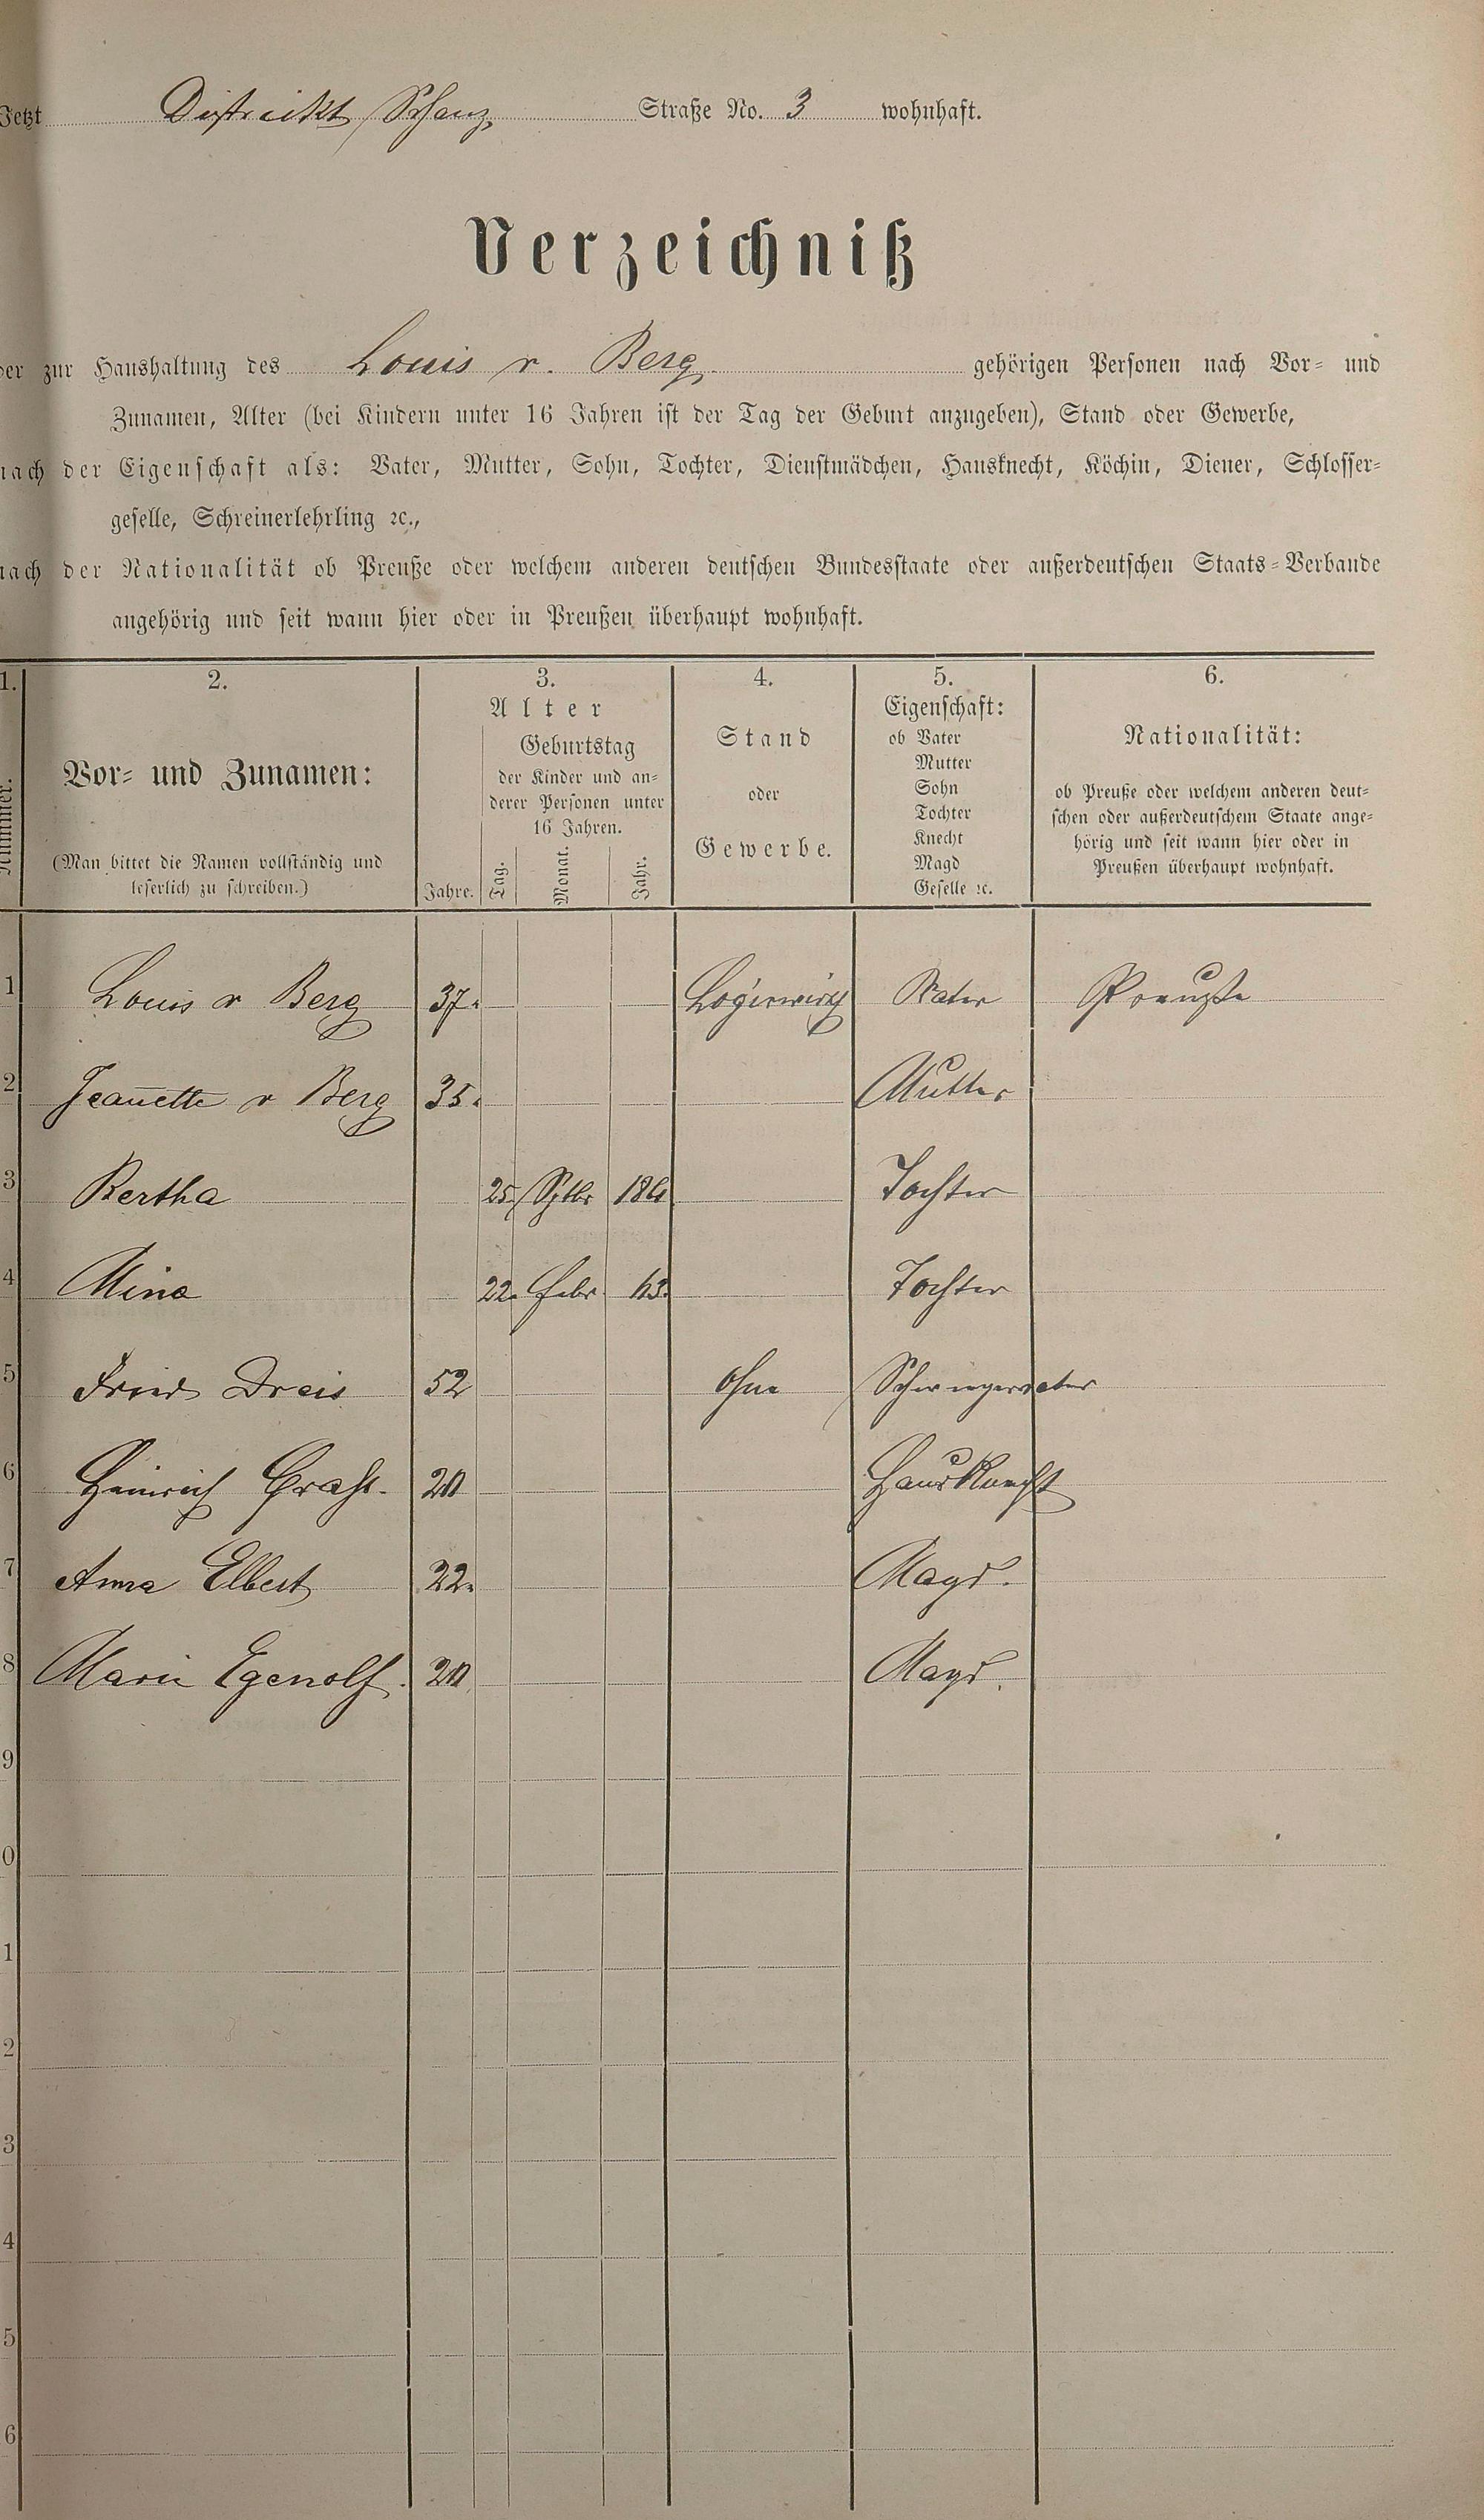 Jetzt Distreikt Schanz Straße No. 3 wohnhaft.
Verzeichniß
der zur Haushaltung des Louis v. Berg. gehörigen Personen nach Vor- und
Zunamen, Alter (bei Kindern unter 16 Jahren ist der Tag der Geburt anzugeben), Stand oder Gewerbe,
nach der Eigenschaft als: Vater, Mutter, Sohn, Tochter, Dienstmädchen, Hausknecht, Köchin, Diener, Schlosser-
geselle, Schreinerlehrling ꝛc.,
nach der Nationalität ob Preuße oder welchem anderen deutschen Bundesstaate oder außerdeutschen Staats-Verbande
angehörig und seit wann hier oder in Preußen überhaupt wohnhaft.
1. 2. 3. 4. 5. 6.
Nummer.
Vor- und Zunamen:
(Man bittet die Namen vollständig und
leserlich zu schreiben.)
Alter
Jahre.
Geburtstag
der Kinder und an-
derer Personen unter
16 Jahren.
Tag. Monat. Jahr.
Stand
oder
Gewerbe.
Eigenschaft:
ob Vater
Mutter
Sohn
Tochter
Knecht
Magd
Geselle ꝛc.
Nationalität:
ob Preuße oder welchem anderen deut-
schen oder außerdeutschem Staate ange-
hörig und seit wann hier oder in
Preußen überhaupt wohnhaft.
1 Louis v Berg 37. Logirwirth Vater Preuße
2 Jean̅ette v Berg 35. Mutter
3 Bertha 25. Sptbr Tochter
4 Mina 22. Febr. 63. Tochter
5 Fried Dreis 52 ohne Schwiegervater
6 Heinrich 20 Hausknecht
7 Anna Elbert 22. Magd.
8 Marie Egenolf. 20. Magd.
9
0
1
2
3
4
5
6